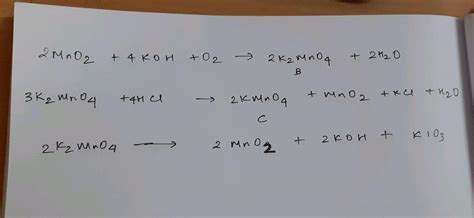 2MnO2 + 4KOH + O2 → 2K2MnO4 + 2H2O
B
3K2MnO4 + 4HCl → 2KMnO4 + MnO2 + KCl + H2O
C
2K2MnO4 → 2MnO2 + 2KOH + KIO3